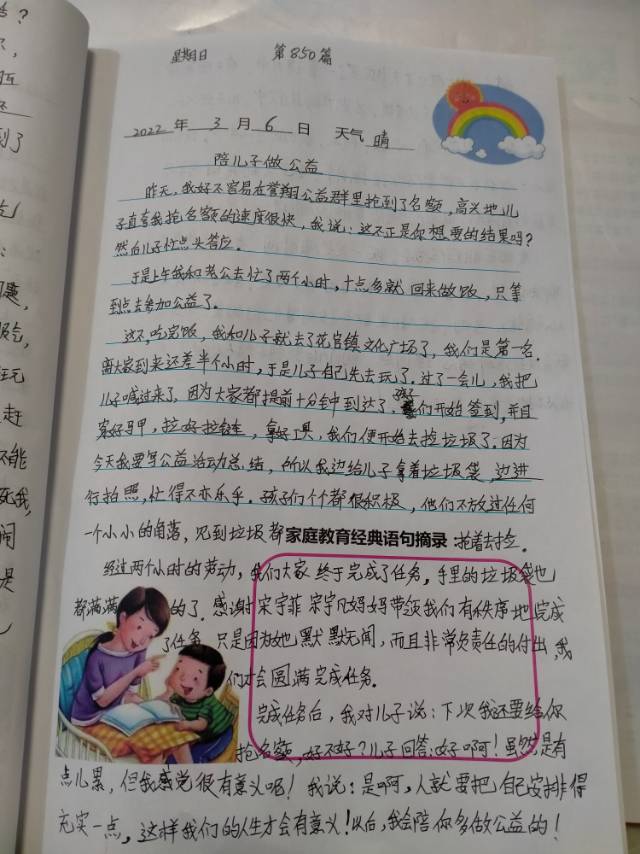 星期日 第850篇
2022 年 3 月 6 日 天气 晴
陪儿子做公益
昨天,我好不容易在誉翔公益群里抢到了名额,高兴地儿
子直夸我抢名额的速度很快,我说:这不正是你想要的结果吗?
然后儿子忙点头答应。
于是上午我和老公去忙了两个小时,十点多就回来做饭,只等
到点去参加公益了。
这不,吃完饭,我和儿子就去了花官镇文化广场了,我们是第一名.
离大家到来还差半个小时,于是儿子自己先去玩了.过了一会儿,我把
儿子喊过来了,因为大家都提前十分钟到达了.孩子们开始签到,并且
穿好马甲,拉好拉链,拿好工具,我们便开始去捡垃圾了.因为
今天我要写公益活动总结,所以我边给儿子拿着垃圾袋,边进
行拍照,忙得不亦乐乎.孩子们个个都很积极,他们不放过任何
一个小小的角落,见到垃圾都家庭教育经典语句摘录抢着去捡.
经过两个小时的劳动,我们大家终于完成了任务,手里的垃圾袋也
都满满的了.感谢宋宇菲宋宇凡妈妈带领我们有秩序地完成
了任务,只是因为她默默无闻,而且非常负责任的付出,我
们才会圆满完成任务.
完成任务后,我对儿子说:下次我还要给你
抢名额,好不好?儿子回答:好啊!虽然是有
点儿累,但我感觉很有意义呢!我说:是啊,人就要把自己安排得
充实一点,这样我们的人生才会有意义!以后,我会陪你多做公益的!